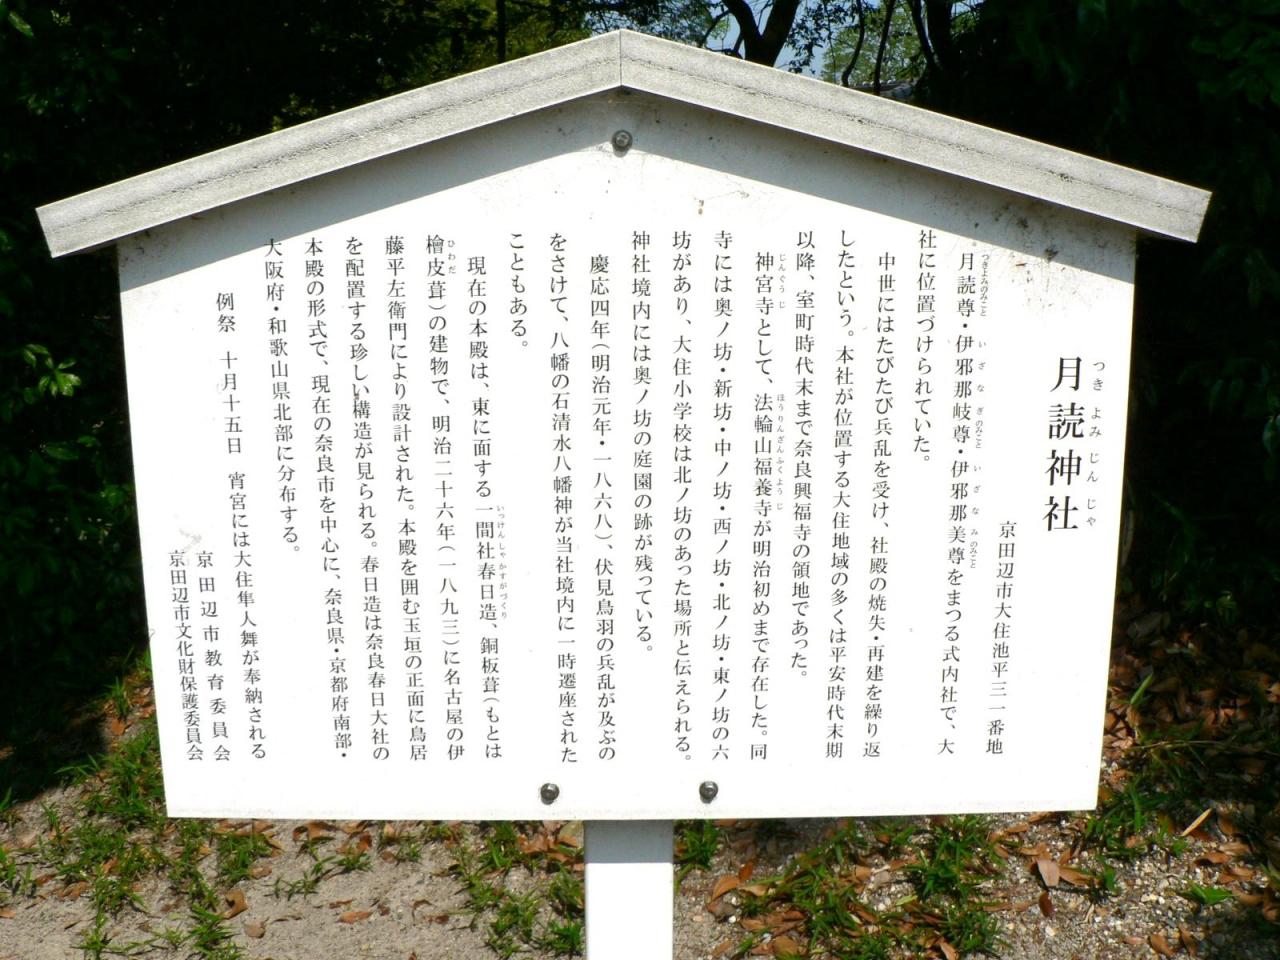 月読神社
京田辺市大住池平三一番地
月読尊・伊邪那岐尊・伊邪那美尊をまつる式内社で、大
社に位置づけられていた。
中世にはたびたび兵乱を受け、社殿の焼失・再建を繰り返
したという。本社が位置する大住地域の多くは平安時代末期
以降、室町時代末まで奈良興福寺の領地であった。
神宮寺として、法輪山福養寺が明治初めまで存在した。同
寺には奥ノ坊・新坊・中ノ坊・西ノ坊・北ノ坊・東ノ坊の六
坊があり、大住小学校は北ノ坊のあった場所と伝えられる。
神社境内には奥ノ坊の庭園の跡が残っている。
慶応四年(明治元年・一八六八)、伏見鳥羽の兵乱が及ぶの
をさけて、八幡の石清水八幡神が当社境内に一時遷座された
こともある。
現在の本殿は、東に面する一間社春日造、銅板葺(もとは
檜皮葺)の建物で、明治二十六年(一八九三)に名古屋の伊
藤平左衛門により設計された。本殿を囲む玉垣の正面に鳥居
を配置する珍しい構造が見られる。春日造は奈良春日大社の
本殿の形式で、現在の奈良市を中心に、奈良県・京都府南部・
大阪府・和歌山県北部に分布する。
例祭 十月十五日 宵宮には大住隼人舞が奉納される
京田辺市教育委員会
京田辺市文化財保護委員会